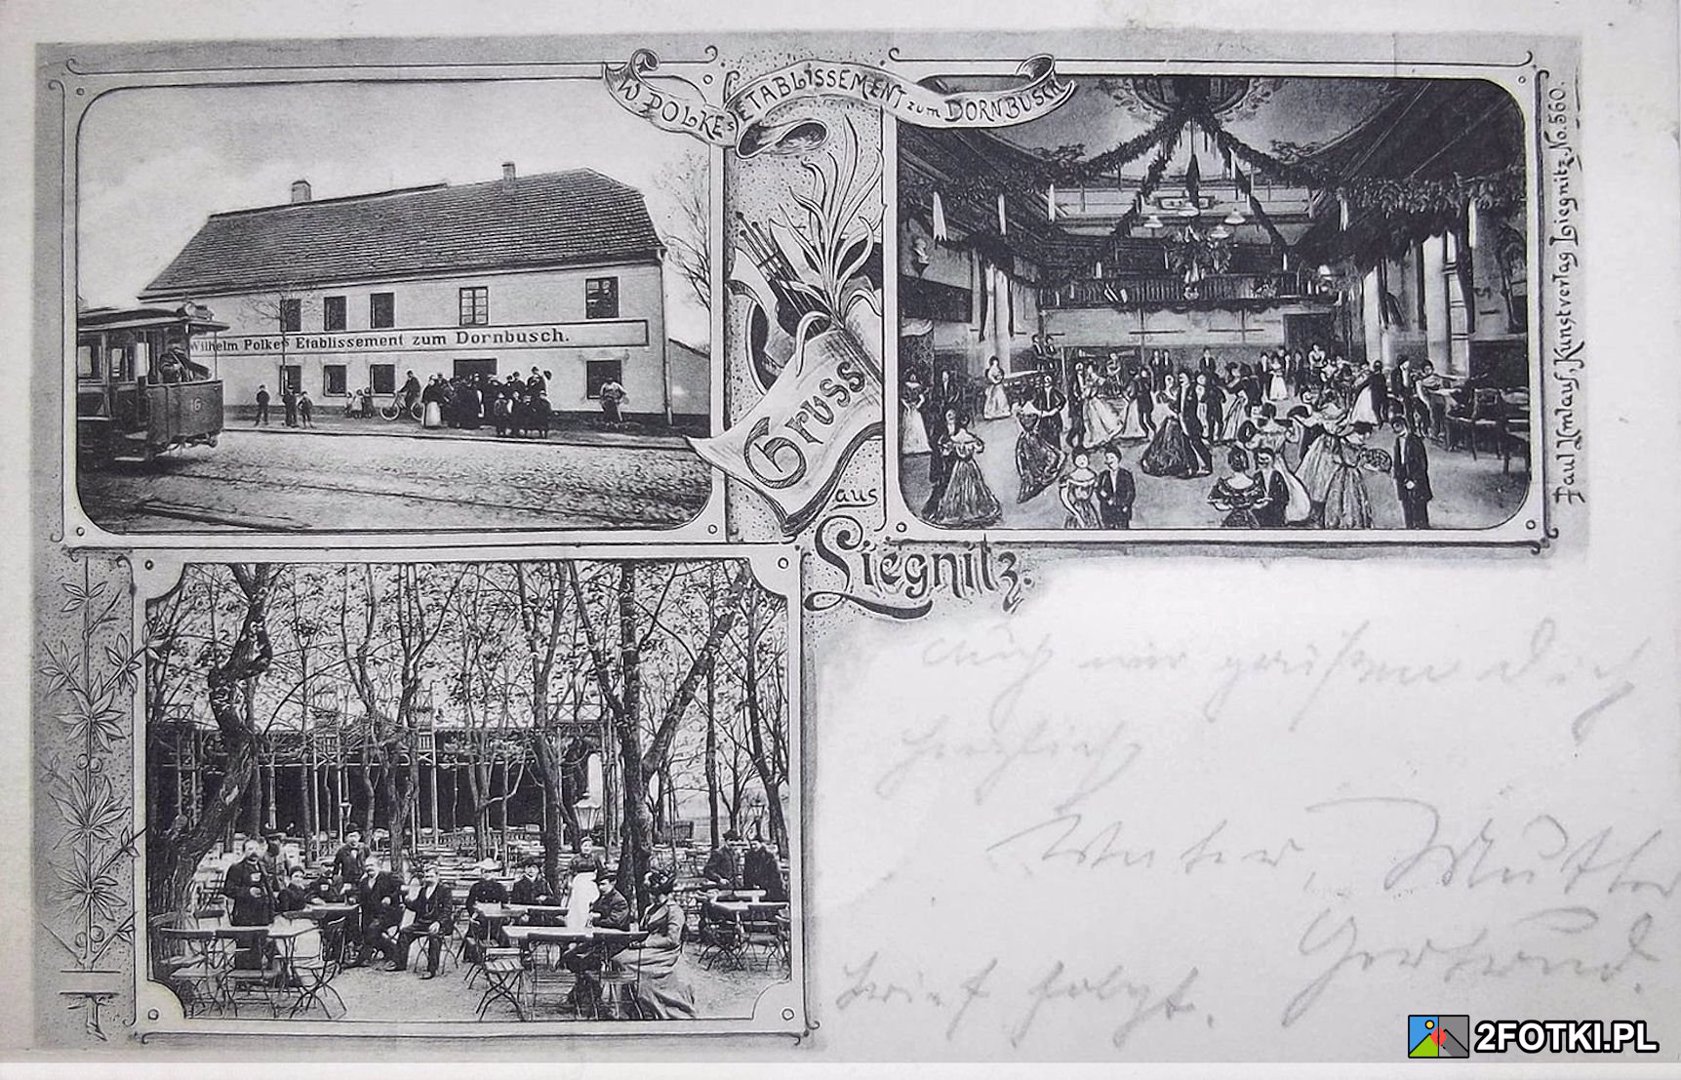 W. POLKEs ETABLISSEMENT zum DORNBUSCH
Wilhelm Polke's Etablissement zum Dornbusch.
16
Gruss
aus
Liegnitz.
Paul Umlauf, Kunstverlag Liegnitz No. 560.
Auch wir grüßen Dich
herzlich
Vater, Mutter
Gertrud.
Brief folgt.
2FOTKI.PL